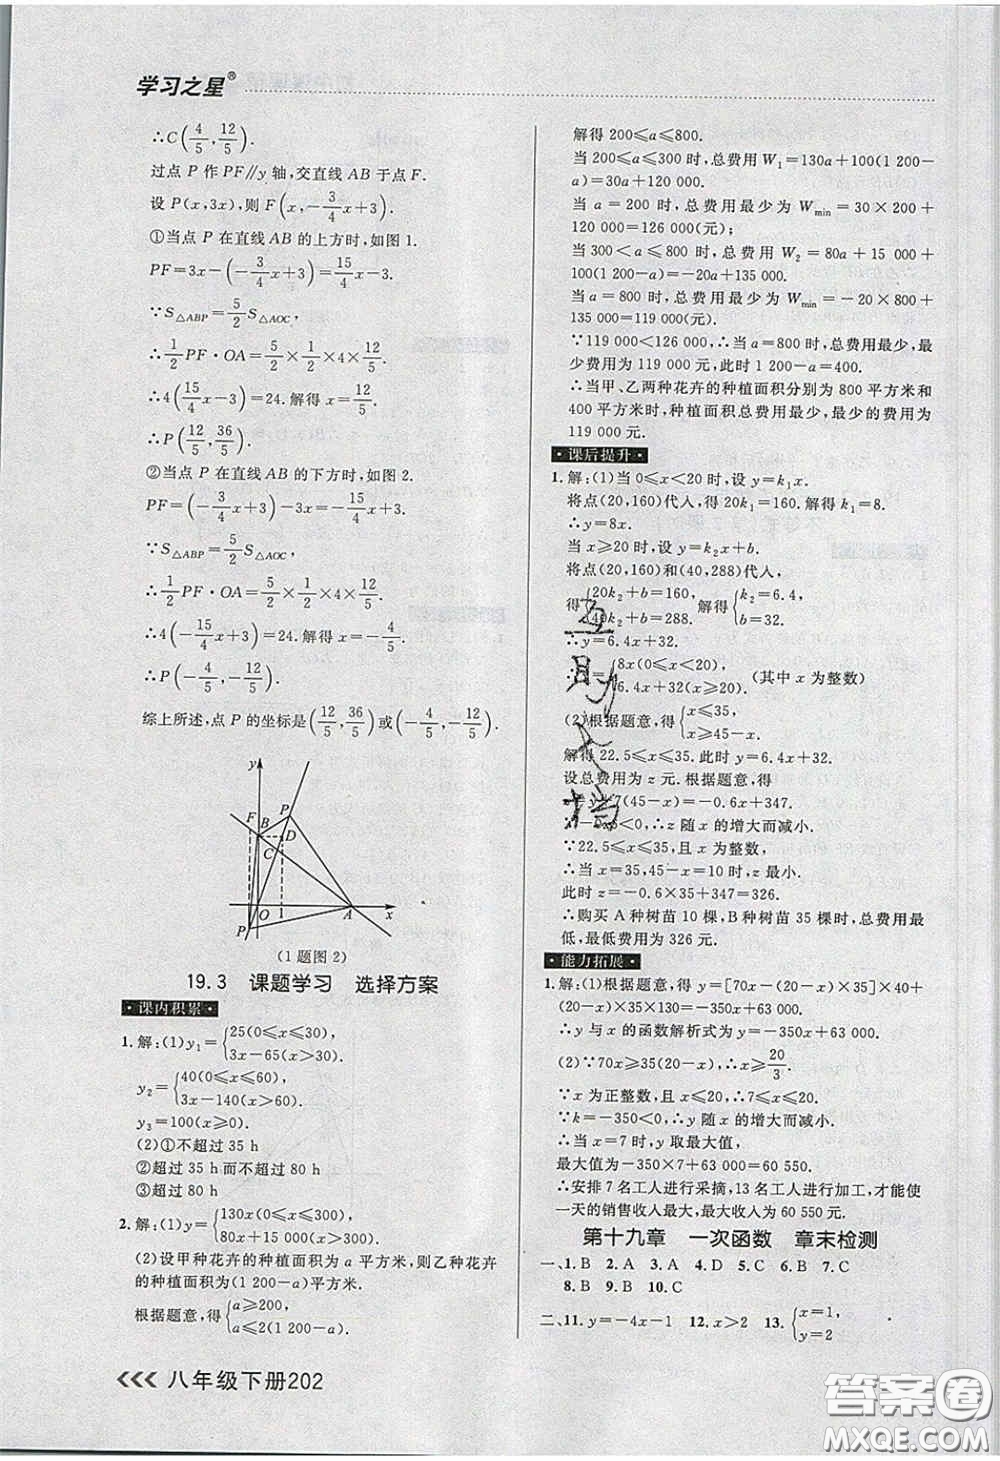 学习之星®
∴C(4/5,12/5).
过点 P 作 PF∥y 轴,交直线 AB 于点 F.
设 P(x,3x),则 F(x,-3/4x+3).
①当点 P 在直线 AB 的上方时,如图 1.
PF=3x-(-3/4x+3)=15/4x-3.
∵S△ABP=5/2S△AOC,
∴1/2PF·OA=5/2×1/2×4×12/5,
∴4(15/4x-3)=24.解得 x=12/5.
∴P(12/5,36/5).
②当点 P 在直线 AB 的下方时,如图 2.
PF=(-3/4x+3)-3x=-15/4x+3.
∵S△ABP=5/2S△AOC,
∴1/2PF·OA=5/2×1/2×4×12/5,
∴4(-15/4x+3)=24.解得 x=-4/5.
∴P(-4/5,-12/5).
综上所述,点 P 的坐标是(12/5,36/5)或(-4/5,-12/5).
y
P
F
B
D
C
O
1
A
x
(1题图 2)
19.3 课题学习 选择方案
课内积累
1.解:(1)y1={25(0≤x≤30),
3x-65(x>30).
y2={40(0≤x≤60),
3x-140(x>60).
y3=100(x≥0).
(2)①不超过 35 h
②超过 35 h 而不超过 80 h
③超过 80 h
2.解:(1)y={130x(0≤x≤300),
80x+15 000(x>300).
(2)设甲种花卉的种植面积为 a 平方米,则乙种花卉
的种植面积为(1 200-a)平方米.
根据题意,得{a≥200,
a≤2(1 200-a).
八年级下册202
解得 200≤a≤800.
当 200≤a≤300 时,总费用 W1=130a+100(1 200-
a)=30a+120 000.
当 a=200 时,总费用最少为 Wmin=30×200+
120 000=126 000(元);
当 300<a≤800 时,总费用 W2=80a+15 000+
100(1 200-a)=-20a+135 000.
当 a=800 时,总费用最少为 Wmin=-20×800+
135 000=119 000(元);
∵119 000<126 000,∴当 a=800 时,总费用最少,最
少费用为 119 000 元,此时 1 200-a=400.
∴当甲、乙两种花卉的种植面积分别为 800 平方米和
400 平方米时,种植面积总费用最少,最少的费用为
119 000 元.
课后提升
1.解:(1)当 0≤x<20 时,设 y=k1x.
将点(20,160)代入,得 20k1=160.解得 k1=8.
∴y=8x.
当 x≥20 时,设 y=k2x+b.
将点(20,160)和(40,288)代入,
得{20k2+b=160,
40k2+b=288.解得{k2=6.4,
b=32.
∴y=6.4x+32.
∴y={8x(0≤x<20),
6.4x+32(x≥20).(其中 x 为整数)
(2)根据题意,得{x≤35,
x≥45-x.
解得 22.5≤x≤35.此时 y=6.4x+32.
设总费用为 z 元.根据题意,得
z=y+7(45-x)=-0.6x+347.
∵-0.6<0,∴z 随 x 的增大而减小.
∵22.5≤x≤35,且 x 为整数,
∴当 x=35,45-x=10 时,z 最小.
此时 z=-0.6×35+347=326.
∴购买 A 种树苗 10 棵,B种树苗 35 棵时,总费用最
低,最低费用为 326 元.
能力拓展
1.解:(1)根据题意,得 y=[70x-(20-x)×35]×40+
(20-x)×35×130=-350x+63 000.
∴y 与 x 的函数解析式为 y=-350x+63 000.
(2)∵70x≥35(20-x),∴x≥20/3.
∵x 为正整数,且 x≤20,∴7≤x≤20.
∵k=-350<0,∴y 随 x 的增大而减小.
∴当 x=7 时,y 取最大值,
最大值为-350×7+63 000=60 550.
∴安排 7 名工人进行采摘,13 名工人进行加工,才能使
一天的销售收入最大,最大收入为 60 550 元.
第十九章 一次函数 章末检测
一、1.B 2.A 3.A 4.D 5.C 6.B 7.C
8.B 9.B 10.C
二、11.y=-4x-1 12.x>2 13.{x=1,
y=2
答案圈
MXQE.COM